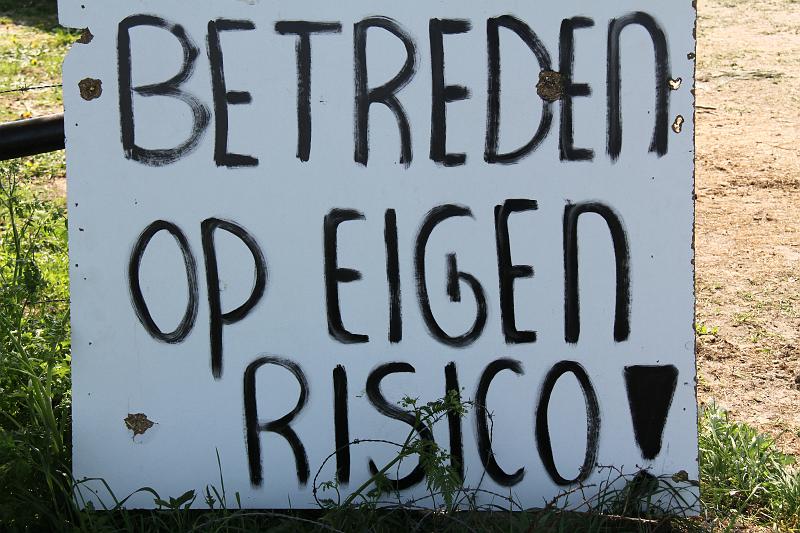 BETREDEN
OP EIGEN
RISICO!